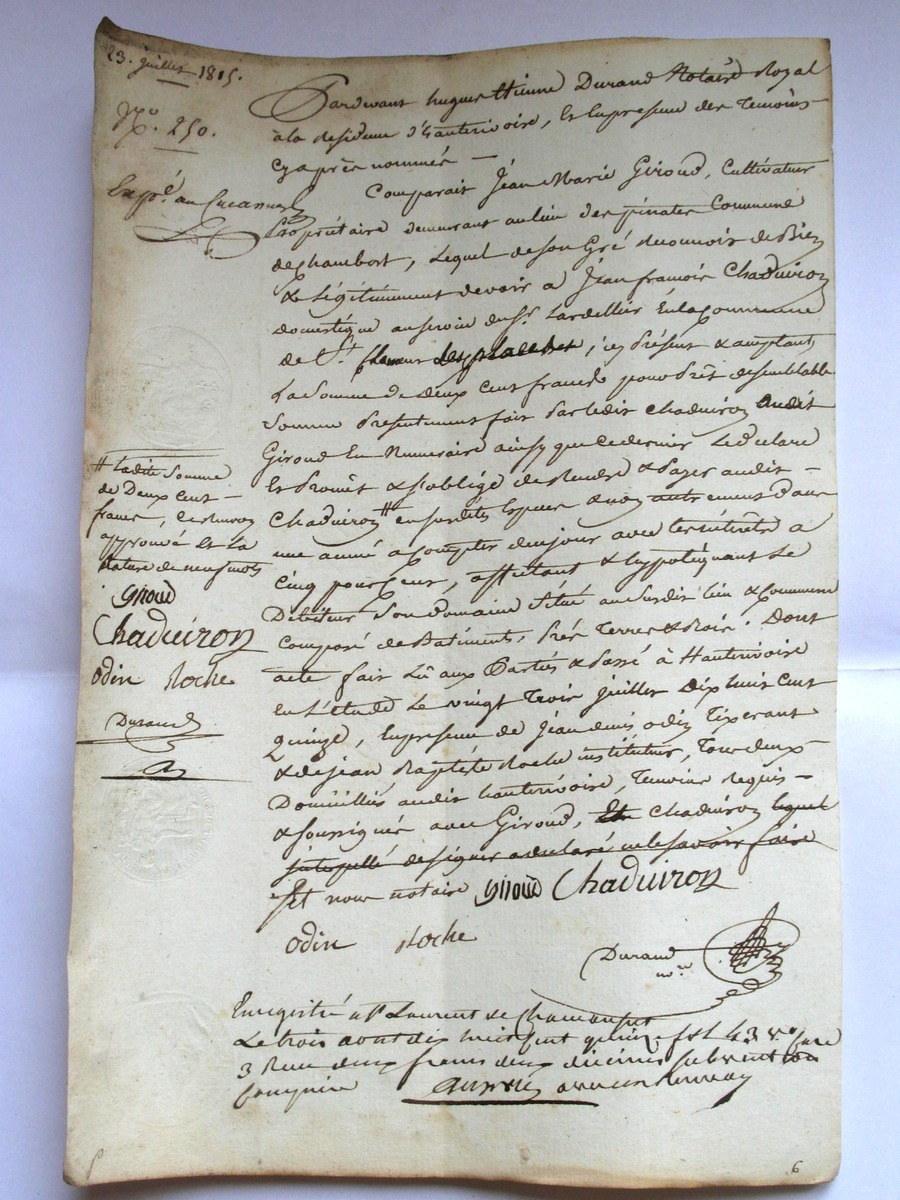 23. juillet 1815.
No. 250.
Expé. au Créancier
Pardevant hugues Etienne Durand Notaire Royal
à la residence d'hauterivoire, Et En presence des Temoins
cy après nommés —
Comparait Jean Marie Giroud, Cultivateur
Propriétaire demeurant au lieu des pinates Commune
de chambost, Lequel de son Gré reconnoit de Bien
& Légitimement devoir à Jean francois Chaduiron
domestique au servisce du Sr. Lardellier En la Commune
de St. , icy Présent & acceptant
La somme de deux cent francs pour Prêt de semblable
somme Presentement fait Par ledit Chaduiron audit
Giroud En Numeraire ainsy que ce dernier Le declare
Et Promet & s'oblige de Rendre & Payer audit —
Chaduiron # en susdites Especes & non autrement dans
une année à Compter de ce jour avec les intérêts à
Cinq pour Cent, affectant & hypotéquant Le
Débiteur Son domaine Situé au Susdit lieu & Commune
Composé de Batiments, Prés Terres & Bois. Dont
acte fait Lû aux Parties & Passé à Hauterivoire
En L'étude Le vingt Trois juillet dix huit cent
Quinze, En presence de Jean denis odin Tixerant
& de jean Baptiste Roche instituteur, Tous deux
Domicilliés audit hauterivoire, Temoins requis —
& soussignés avec Giroud, Et Chaduiron lequel
interpellé de signer a declaré ne le savoir faire
Et nous notaire Giroud Chaduiron
odin Roche
Durand
nre
# Ladite Somme
de Deux Cent —
francs, Le Renvoy
approuvé Et la
Rature de neuf mots
Giroud
Chaduiron
odin Roche
Durand
Enregistré a St Laurent de Chamousset
Le trois aout dix huit cent quinze fol 43 vo Case
3 Recu deux francs deux decimes subvention
Comprise
6